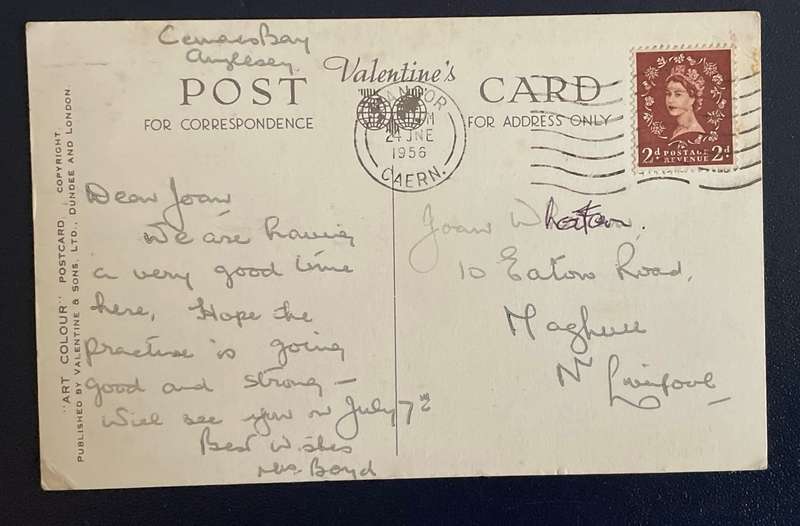 Cemaes Bay
Anglesey
Valentine's
POST CARD
FOR CORRESPONDENCE
FOR ADDRESS ONLY
BANGOR
24 JNE
1956
CAERN.
2d POSTAGE 2d
REVENUE
"ART COLOUR" POSTCARD COPYRIGHT
PUBLISHED BY VALENTINE & SONS, LTD., DUNDEE AND LONDON.
Dear Joan
We are having
a very good time
here, Hope the
practise is going
good and strong –
Will see you on July 7th
Best Wishes
Mrs Boyd
Joan
10 Eaton Road,
Maghull
Nr Liverpool